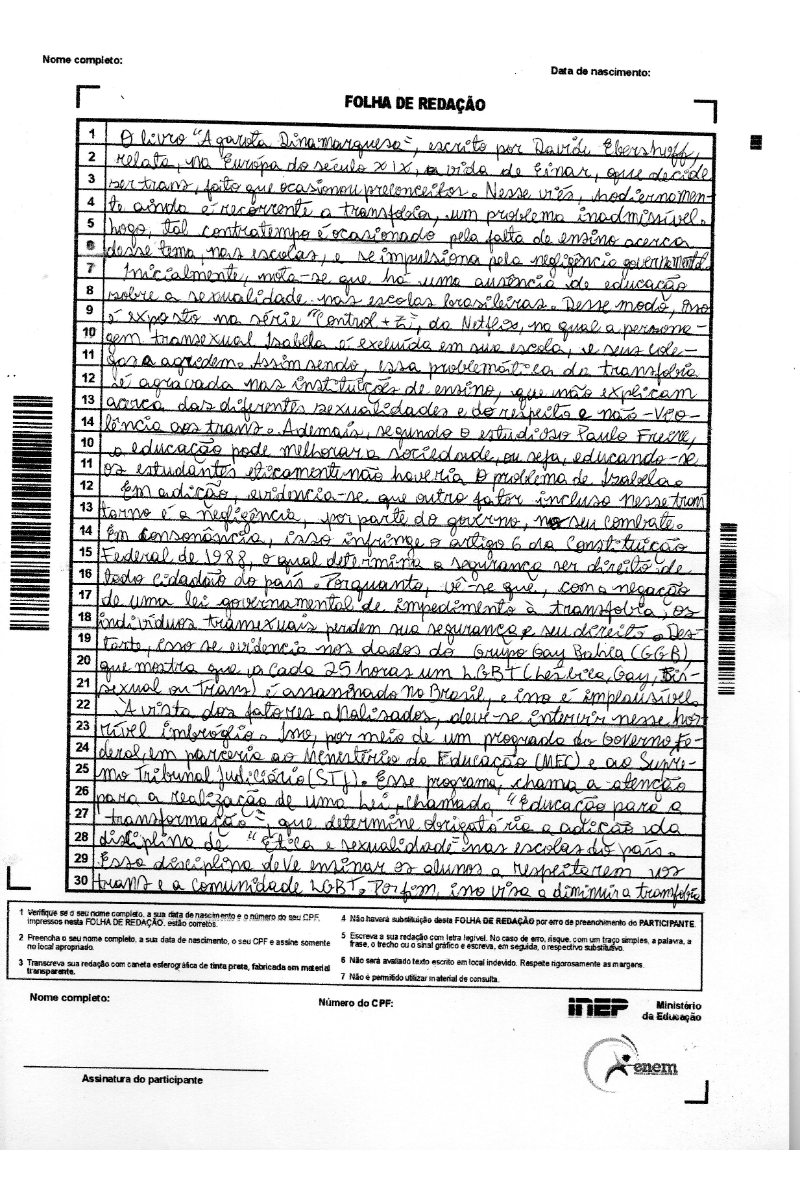 Nome completo:
Data de nascimento:
FOLHA DE REDAÇÃO
1 O livro "A garota Dinamarquesa", escrito por Davide Ebershoff,
2 relata, na Európa do século XIX, a vida de Einar, que decide
3 ser trans, fato que ocasionou preconceitos. Nesse viés, hodiernamen-
4 te ainda é recorrente a transfobia, um problema inadmissível.
5 Logo, tal contratempo é ocasionado pela falta de ensino acerca
6 desse tema, nas escolas, e se impulsiona pela negligência governamental.
7 Inicialmente, nota-se que há uma ausência de educação
8 sobre a sexualidade nas escolas brasileiras. Desse modo, isso
9 é exposto na série "Control + Z", da Netflix, na qual a persona-
10 gem transexual Isabela é excluída em sua escola, e seus cole-
11 gas a agridem. Assim sendo, essa problemática da transfobia
12 é agravada nas instituições de ensino, que não explicam
13 acerca das diferentes sexualidades e do respeito e não-vio-
14 lência aos trans. Ademais, segundo o estudioso Paulo Freire,
10 a educação pode melhorar a sociedade, ou seja, educando-se
11 os estudantes eticamente não haveria o problema de Isabela.
12 Em adição, evidencia-se que outro fator incluso nesse trans
13 torno é a negligência, por parte do governo, no seu combate.
14 Em consonância, isso infringe o artigo 6 da Constituição
15 Federal de 1988, o qual determina a segurança ser direito de
16 todo cidadão do país. Porquanto, vê-se que, com a negação
17 de uma lei governamental de impedimento à transfobia, os
18 indivíduos transexuais perdem sua segurança e seu direito. Des-
19 tarte, isso se evidencia nos dados do Grupo Gay Bahia (GGB)
20 que mostra que, a cada 25 horas um LGBT (Lésbica, Gay, Bis-
21 sexual ou Trans) é assassinado no Brasil, e isso é implausível.
22 A vista dos fatores analisados, deve-se intervir nesse hor-
23 rível imbróglio. Isso, por meio de um programa do Governo Fe-
24 deral, em parceria ao Ministério da Educação (MEC) e ao Supre-
25 mo Tribunal Judiciário (STJ). Esse programa, chama a atenção
26 para a realização de uma Lei, chamada "Educação para a
27 transformação", que determine obrigatória a adição da
28 disciplina de "Ética e sexualidade" nas escolas do país.
29 Essa disciplina deve ensinar os alunos a respeitarem os
30 trans e a comunidade LGBT. Por fim, isso visa a diminuir a transfobia
1 Verifique se o seu nome completo, a sua data de nascimento e o número do seu CPF, impressos nesta FOLHA DE REDAÇÃO, estão corretos.
2 Preencha o seu nome completo, a sua data de nascimento, o seu CPF e assine somente no local apropriado.
3 Transcreva sua redação com caneta esferográfica de tinta preta, fabricada em material transparente.
4 Não haverá substituição desta FOLHA DE REDAÇÃO por erro de preenchimento do PARTICIPANTE.
5 Escreva a sua redação com letra legível. No caso de erro, risque, com um traço simples, a palavra, a frase, o trecho ou o sinal gráfico e escreva, em seguida, o respectivo substitutivo.
6 Não será avaliado texto escrito em local indevido. Respeite rigorosamente as margens.
7 Não é permitido utilizar material de consulta.
Nome completo:
Número do CPF:
INEP
Ministério
da Educação
enem
Assinatura do participante